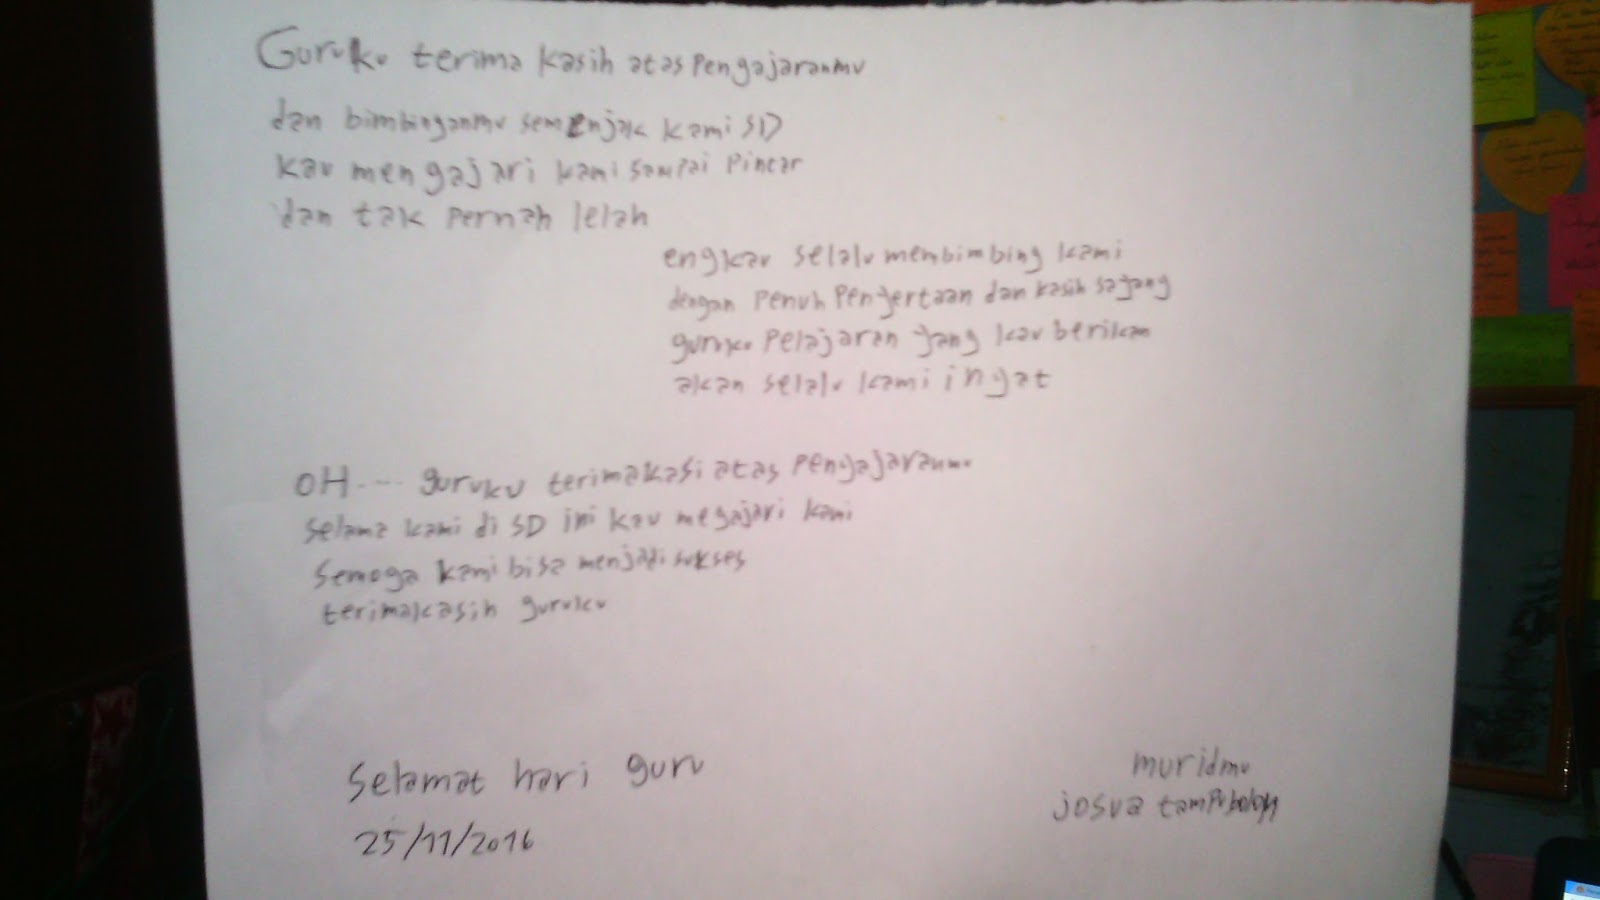 Guruku terima kasih atas Pengajaranmu
dan bimbinganmu semenjak kami SD
kau mengajari kami sampai Pintar
dan tak pernah lelah
engkau selalu membimbing kami
dengan Penuh Penyertaan dan kasih sayang
guruku Pelajaran yang kau berikan
akan selalu kami ingat
OH.... guruku terimakasi atas Pengajaranmu
selama kami di SD ini kau megajari kami
semoga kami bisa menjadi sukses
terimakasih guruku
Selamat hari guru
25/11/2016
muridmu
josua tampubolon